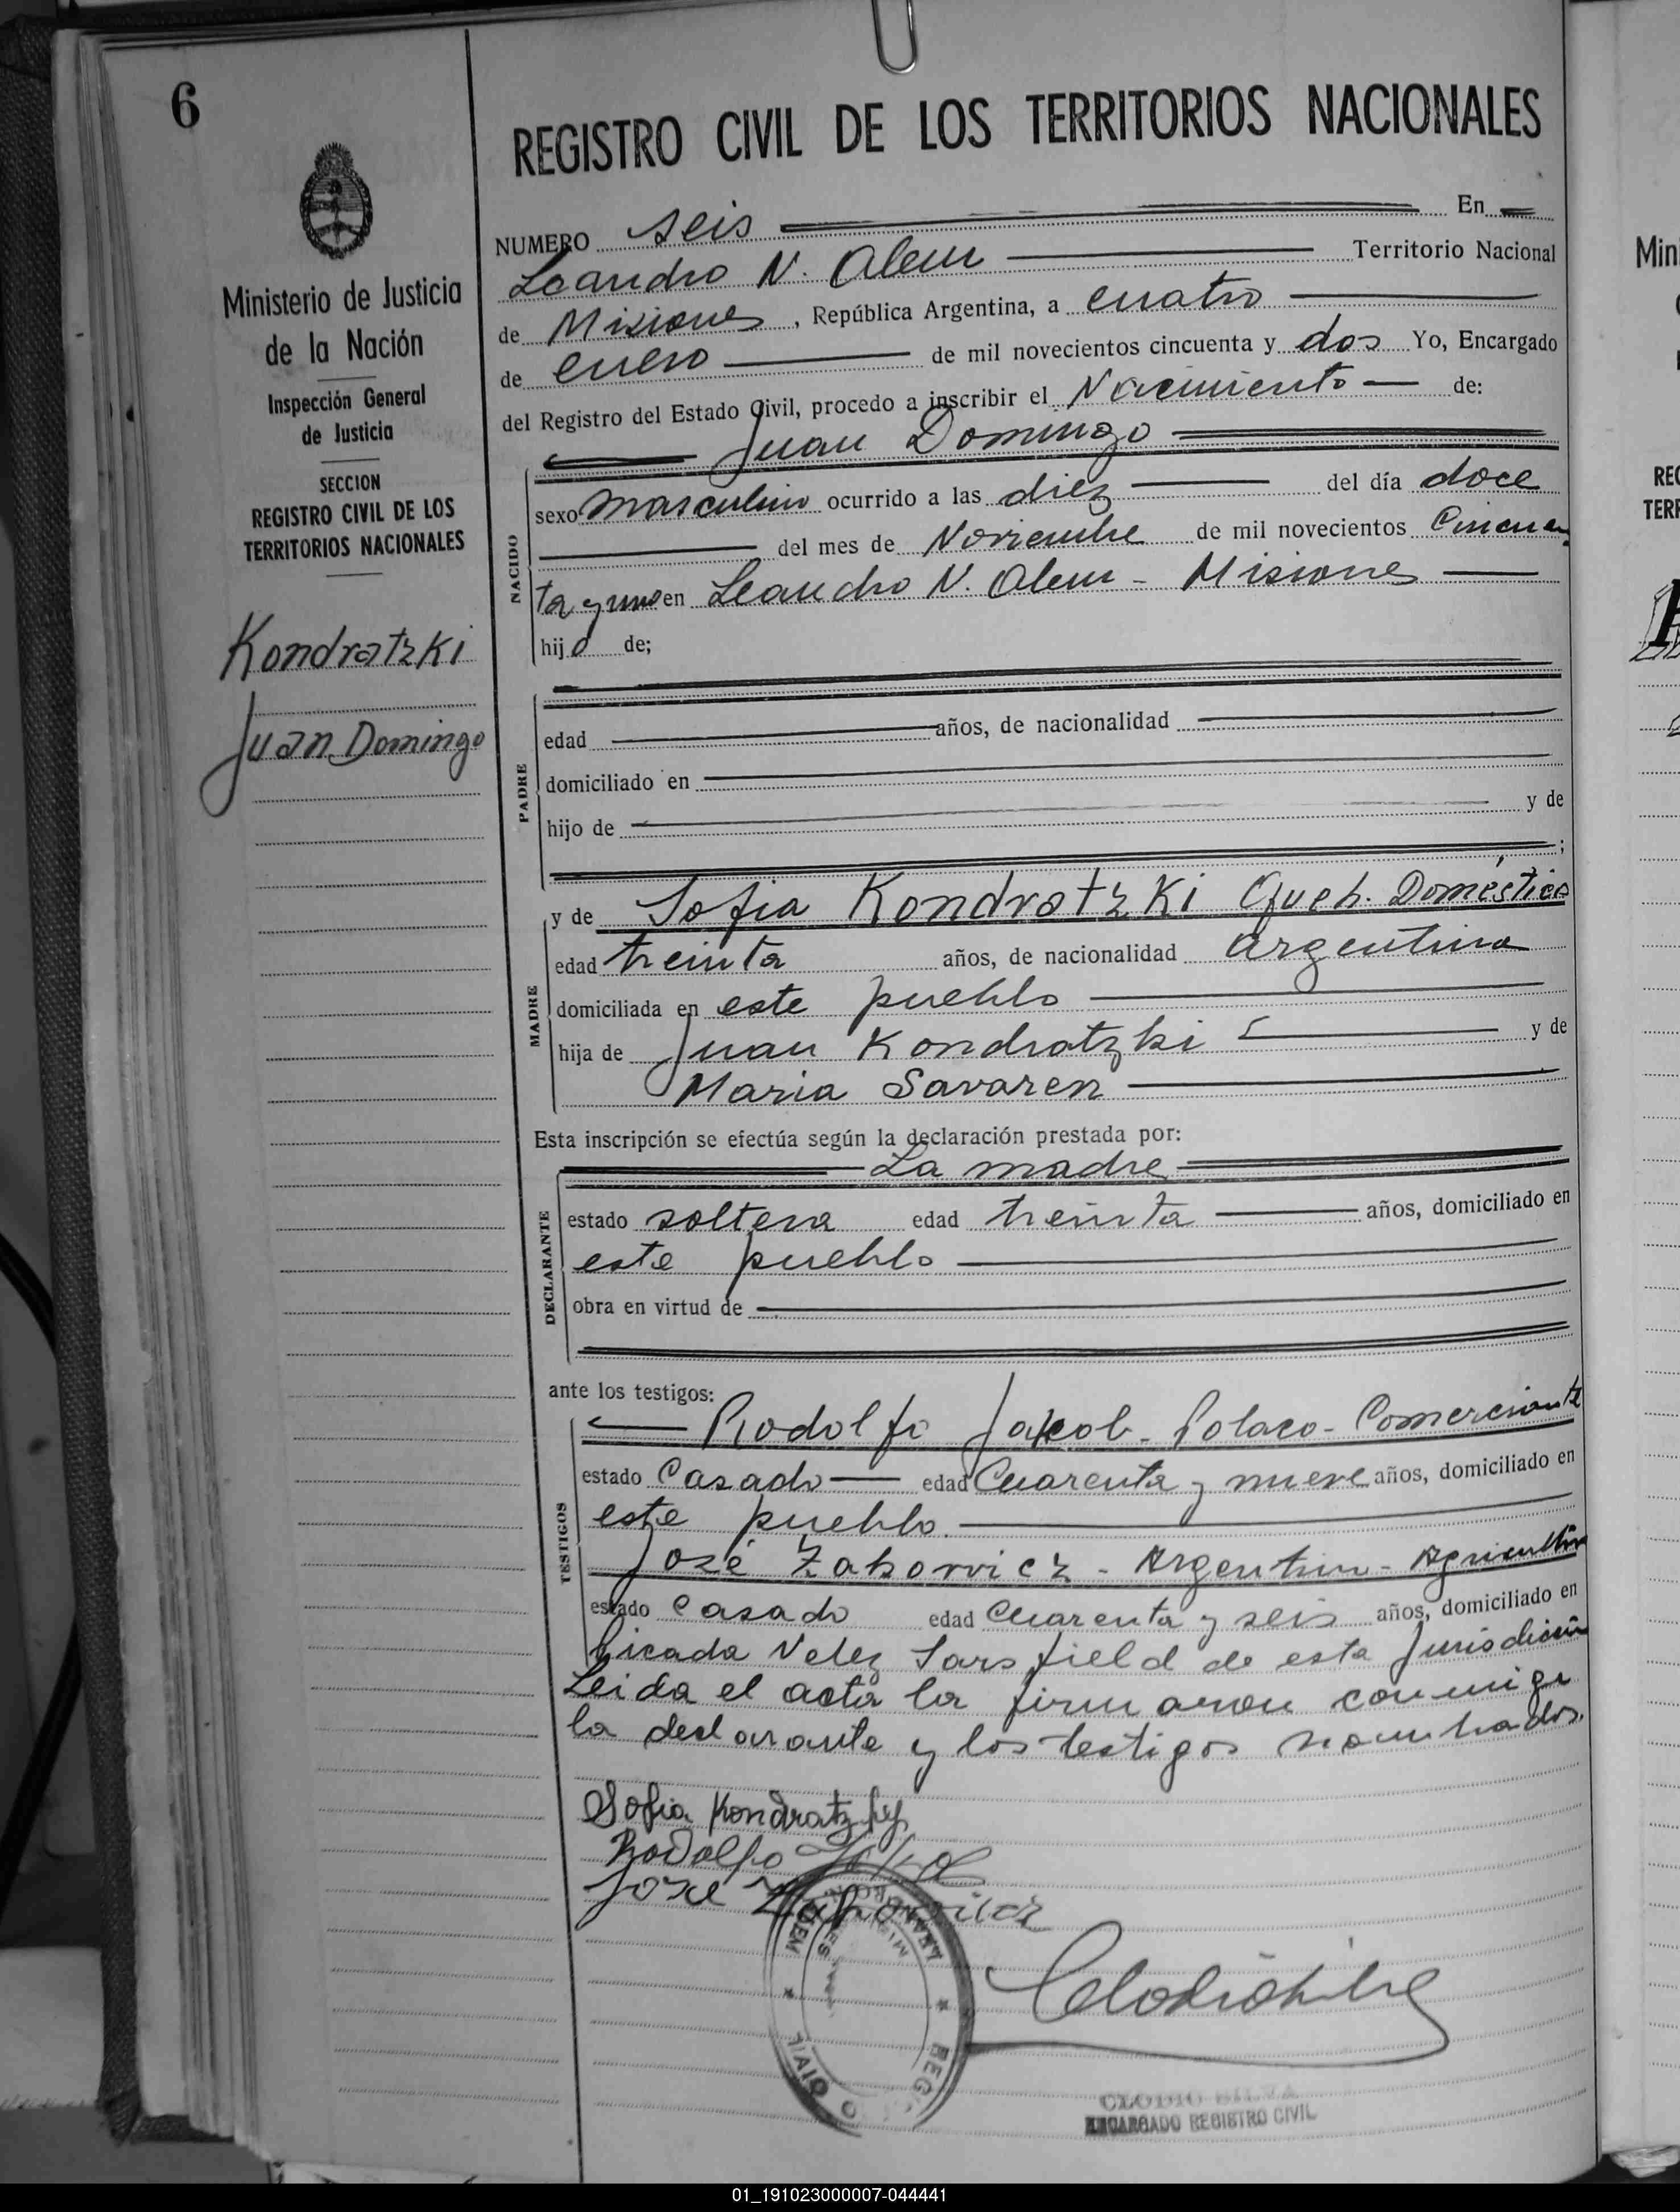 6
REGISTRO CIVIL DE LOS TERRITORIOS NACIONALES
Ministerio de Justicia
de la Nación
Inspección General
de Justicia
SECCION
REGISTRO CIVIL DE LOS
TERRITORIOS NACIONALES
Kondratzki
Juan Domingo
NUMERO seis En
Leandro N. Alem Territorio Nacional
de Misiones, República Argentina, a cuatro
de enero de mil novecientos cincuenta y dos Yo, Encargado
del Registro del Estado Civil, procedo a inscribir el Nacimiento de:
Juan Domingo
NACIDO
sexo masculino ocurrido a las diez del día doce
del mes de Noviembre de mil novecientos Cincuen
ta y uno en Leandro N. Alem - Misiones
hijo de;
PADRE
edad años, de nacionalidad
domiciliado en
hijo de y de
;
MADRE
y de Sofia Kondratzki Queh. Domésticos
edad treinta años, de nacionalidad argentina
domiciliada en este pueblo
hija de Juan Kondratzki y de
Maria Savaren
Esta inscripción se efectúa según la declaración prestada por:
La madre
DECLARANTE
estado soltera edad treinta años, domiciliado en
este pueblo
obra en virtud de
ante los testigos:
TESTIGOS
Rodolfo Jakob - Polaco - Comerciante
estado Casado edad Cuarenta y nueve años, domiciliado en
este pueblo
José Zaborvicz - Argentino - Agricultor
estado Casado edad Cuarenta y seis años, domiciliado en
Picada Velez Sarsfield de esta Jurisdicción
Leida el acta la firmaron conmigo
la declarante y los testigos nombrados.
Sofia Kondratzky
Rodolfo Jakob
José
CLODIO SILVA
ENCARGADO REGISTRO CIVIL
01_191023000007-044441